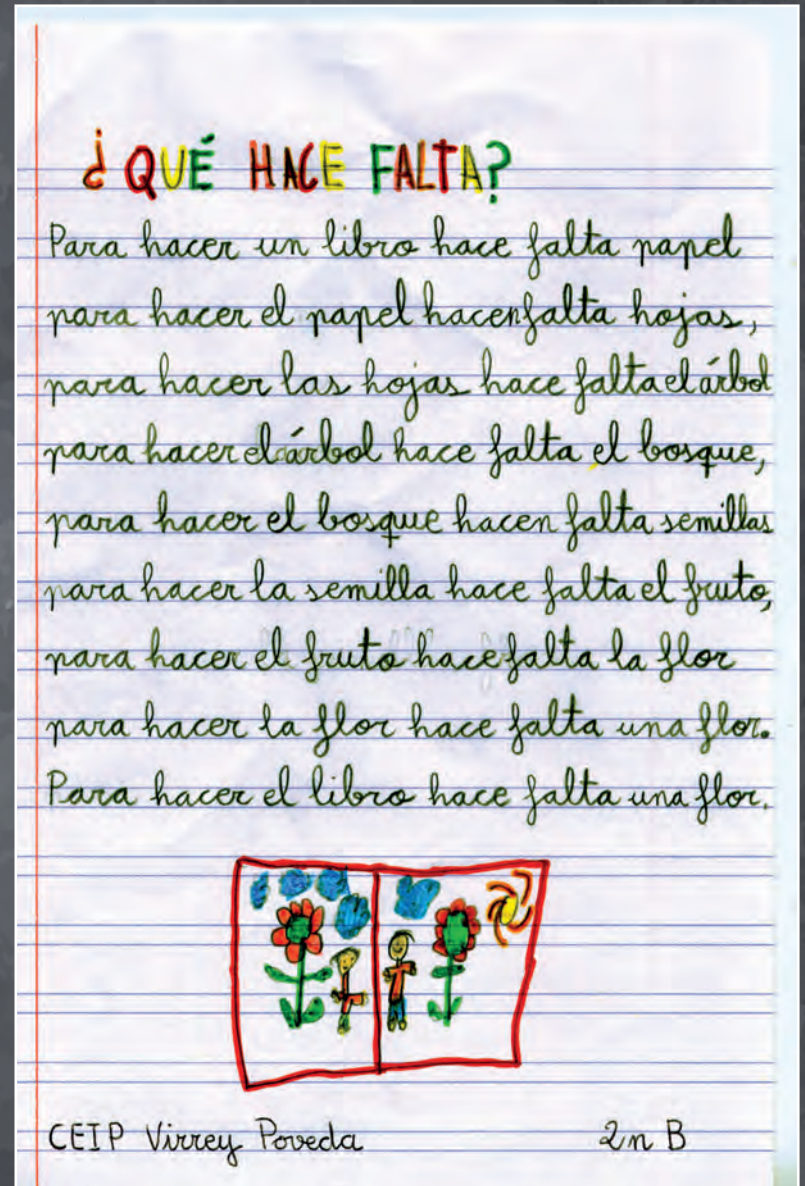 ¿QUÉ HACE FALTA?
Para hacer un libro hace falta papel
para hacer el papel hacen falta hojas,
para hacer las hojas hace falta el árbol
para hacer el árbol hace falta el bosque,
para hacer el bosque hacen falta semillas
para hacer la semilla hace falta el fruto,
para hacer el fruto hace falta la flor
para hacer la flor hace falta una flor.
Para hacer el libro hace falta una flor.
CEIP Virrey Poveda 2n B